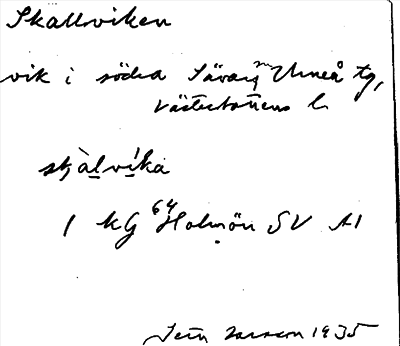 Skallviken
vik i södra Sävar, Umeå tg,
Västerbottens l.
skàlvika
1 KG 64 Holmön SV A1
1935